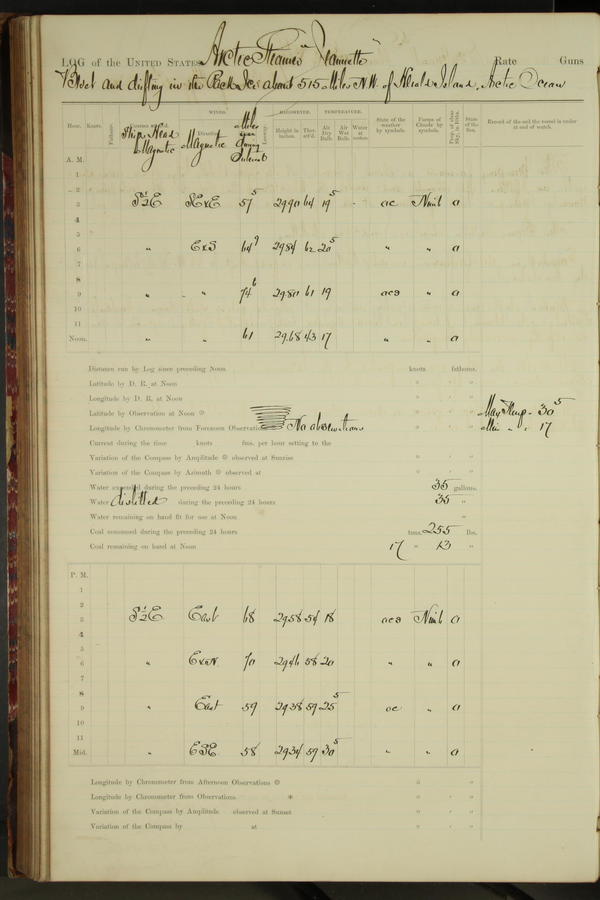 LOG of the UNITED STATES Arctic Steamer "Jeannette" Rate Guns
Beset and drifting in the Pack Ice about 515 Miles N.W. of Herald Island, Arctic Ocean
WINDS. BAROMETER. TEMPERATURE.
Hour. Knots. Fathoms. Ship's Head Magnetic Direction Magnetic Miles during Interval Height in inches. Ther. att'd. Air Dry Bulb. Air Wet Bulb. Water at surface. State of the weather by symbols. Forms of Clouds by symbols. Prop. of clear Sky, in 10ths. State of the Sea. Record of the sail the vessel is under at end of watch.
A. M.
1
2
3 S½E SExE 57⁵ 29.90 64 19⁵ oc Nimb 0
4
5
6 " ExS 64⁹ 29.84 62 20⁵ " " 0
7
8
9 " " 74⁶ 29.80 61 19 ocs " 0
10
11
Noon. " " 61 29.68 43 17 " " 0
Distance run by Log since preceding Noon knots fathoms.
Latitude by D. R. at Noon ° ′ ″
Longitude by D. R. at Noon ° ′ ″
Latitude by Observation at Noon ° ′ ″ Max Temp. 30⁵
Longitude by Chronometer from Forenoon Observations No observations ° ′ ″ Min " " 17
Current during the time knots fms. per hour setting to the
Variation of the Compass by Amplitude observed at Sunrise ° ′ ″
Variation of the Compass by Azimuth observed at ° ′ ″
Water expended during the preceding 24 hours 35 gallons.
Water distilled during the preceding 24 hours 35 "
Water remaining on hand fit for use at Noon "
Coal consumed during the preceding 24 hours tons, 255 lbs.
Coal remaining on hand at Noon 17 " 13 "
P. M.
1
2
3 S½E East 68 29.58 54 18 ocs Nimb 0
4
5
6 " ExN 70 29.46 58 20 " " 0
7
8
9 " East 59 29.38 59 25⁵ oc " 0
10
11
Mid. " ESE 58 29.34 59 30⁵ " " 0
Longitude by Chronometer from Afternoon Observations ° ′ ″
Longitude by Chronometer from Observations * ° ′ ″
Variation of the Compass by Amplitude observed at Sunset ° ′ ″
Variation of the Compass by at ° ′ ″